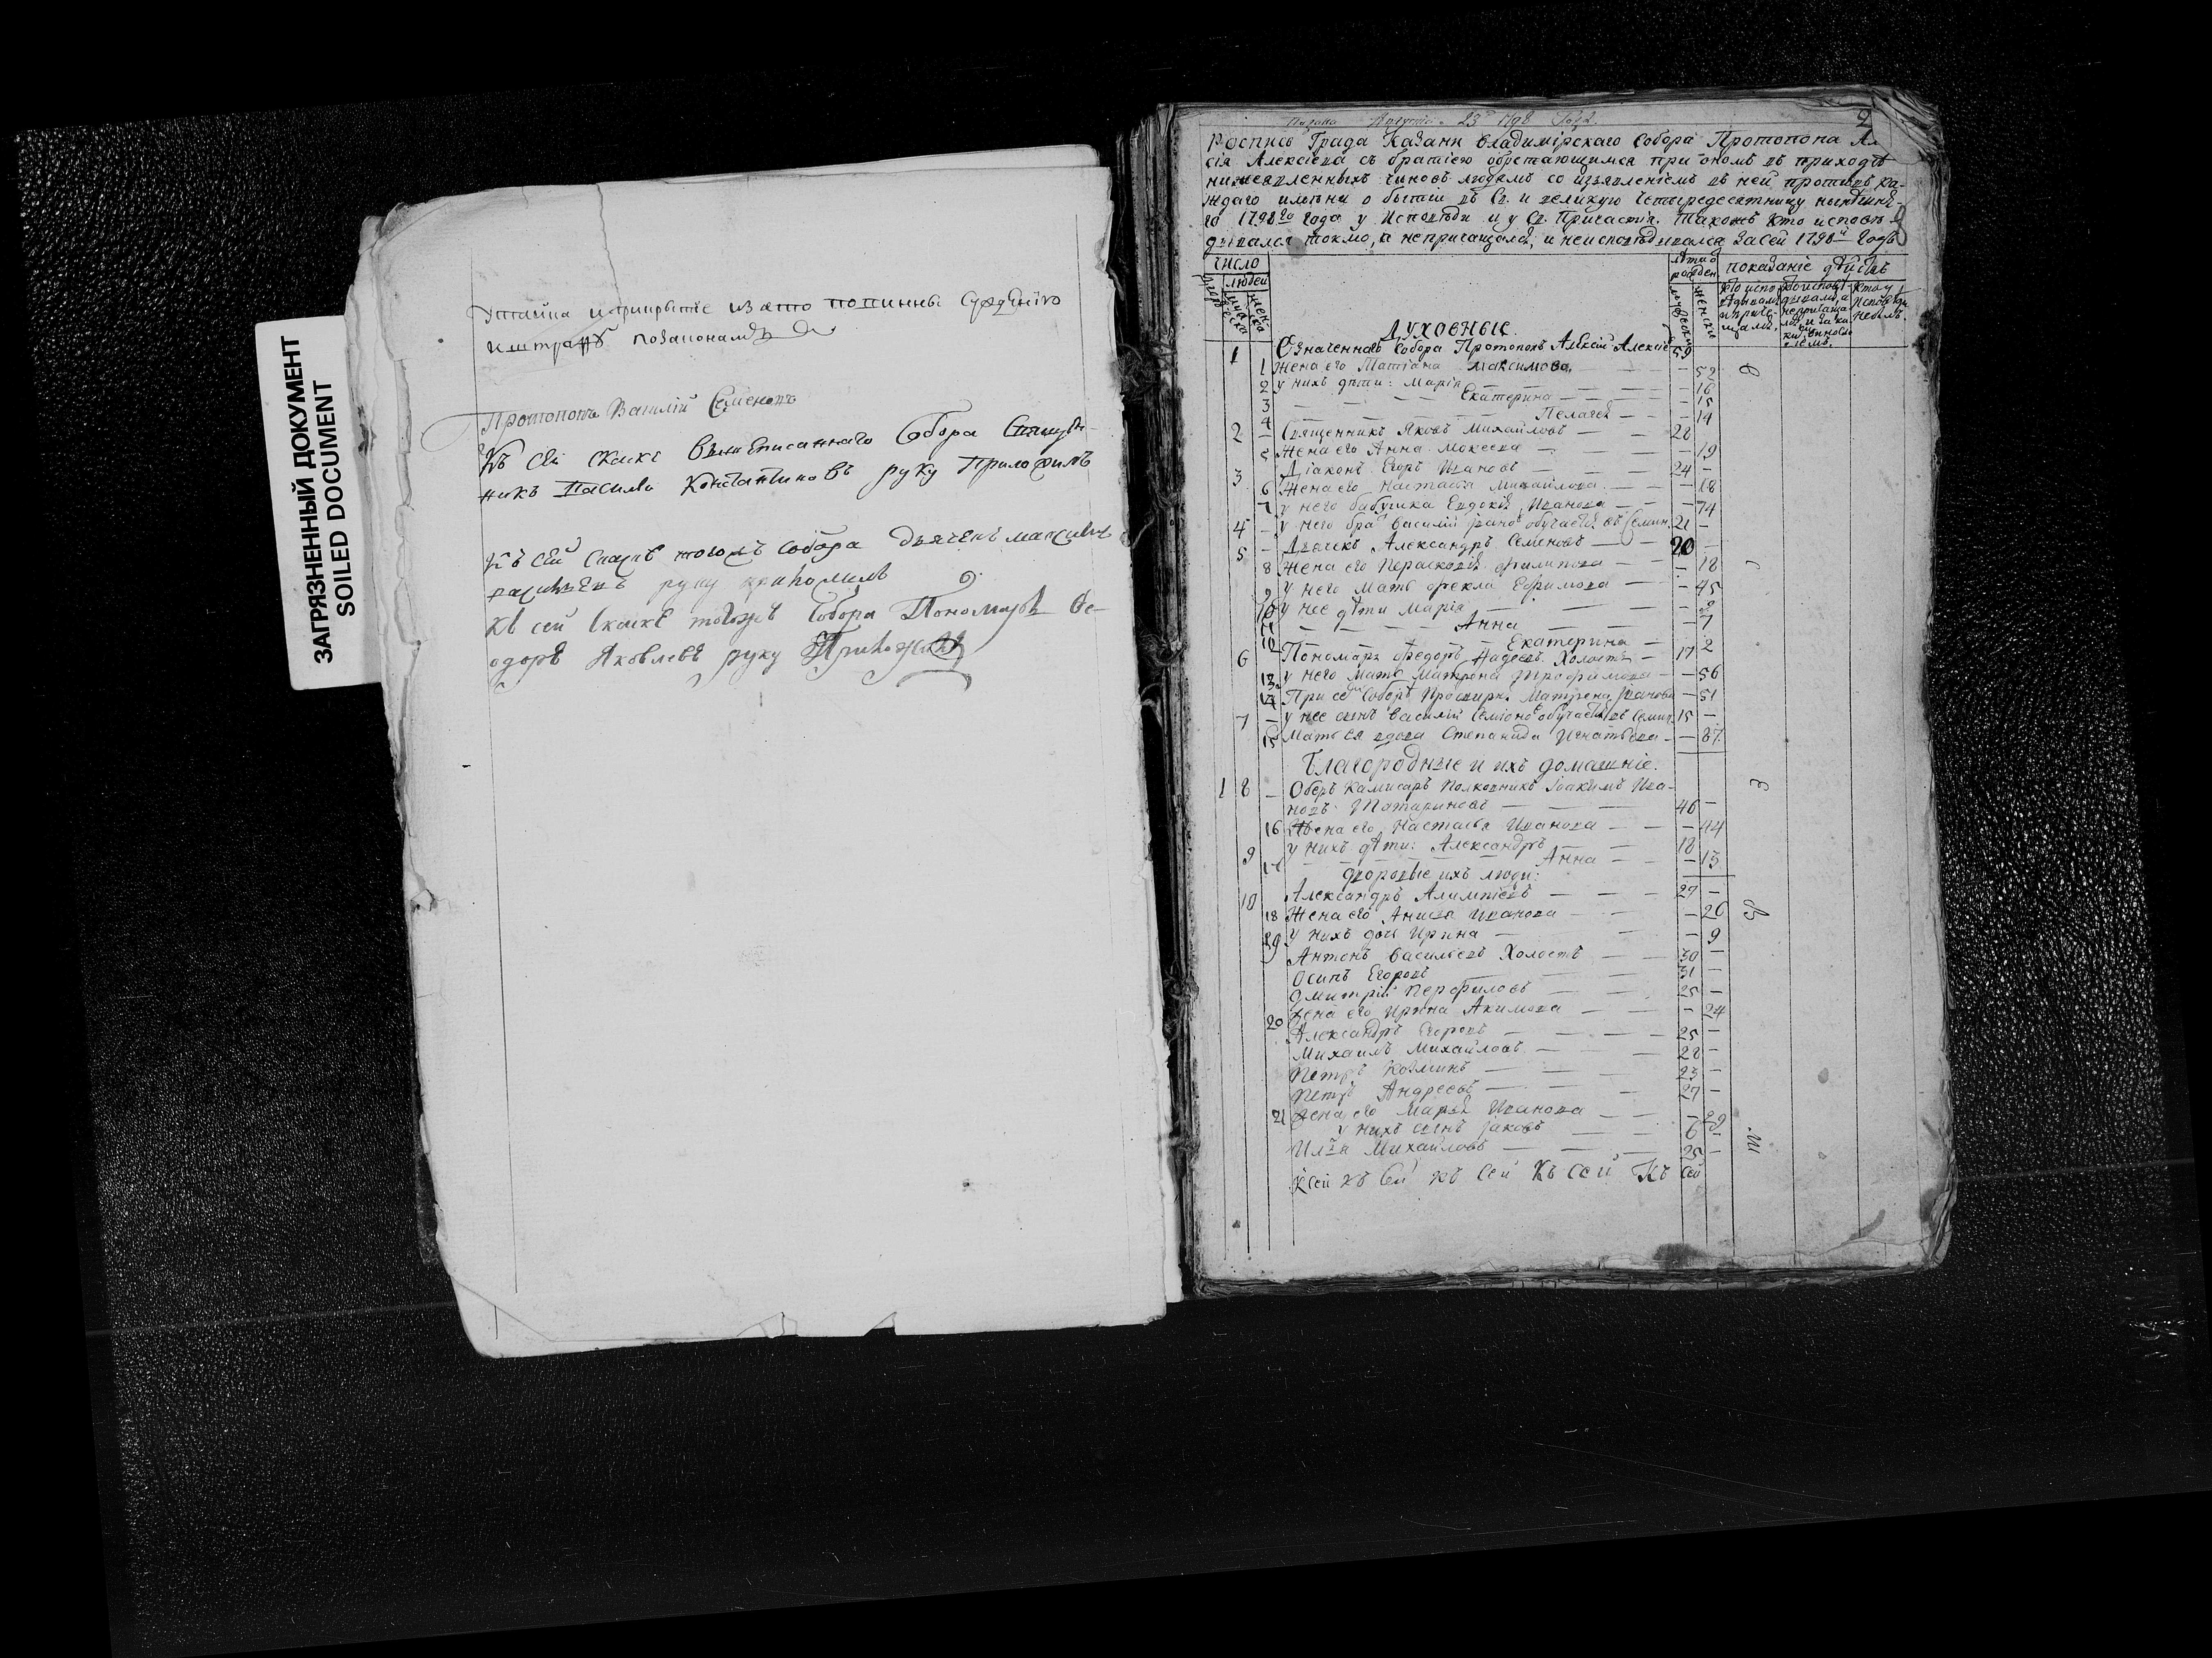 ЗАГРЯЗНЕННЫЙ ДОКУМЕНТ
SOILED DOCUMENT
утайка и прикрытіе из ато повинны суждению
и штрафу по законамъ
Протопопъ Василій Семеновъ
Къ сей скаске вышеписаннаго Собора Священ-
никъ Василей Константиновъ руку приложилъ
Къ сей скаске тогожъ собора дьячекъ максимъ
руку приложилъ
Къ сей скаске тогожъ Собора Пономарь Фе-
одоръ Яковлевъ руку Приложилъ
Подана Августа 23 1798 Года
2
Роспись Града Казани Владимірскаго Собора Протопопа Але
сія Алексіева съ братіею обретающимся при ономъ въ приходѣ
нижеявленныхъ чиновъ людемъ со изъявленіемъ въ ней противъ ка-
ждаго имени о бытіи въ Св. и великую четыредесятницу нынешня-
го 1798го Года у Исповѣди и у Св. Причастія. Такожъ кто исповѣ-
дывался токмо, а непричащался, и неисповѣдывался за сей 1798й Годъ
число
людей
лѣта о
рожден.
показаніе дѣйствъ
Духовные.
1 Означеннаго Собора Протопопъ Алексій Алексіев 59
1 Жена его Татіана Максимова — 52
2 у нихъ дѣти: Марія — 16
3 Екатерина — 15
4 Пелагея — 14
2 — Священникъ Яковъ Михайловъ — 28
5 Жена его Анна Мокеева — 19
3 Діаконъ Егоръ Ивановъ — 24 —
6 Жена его Настасья Михайлова — 18
7 у него бабушка Евдокія Иванова — 74
4 — у него брат Василій Іванов обучается въ Семин. 21 —
5 — Дьячекъ Александръ Семеновъ — 20 —
8 Жена его Перасковія Филипова — 18
9 у него Мать Фекла Ефимова — 45
10 у нее дѣти Марія
11 Анна — 7
Екатерина — 2
6 Пономарь Федоръ Надеевъ Холостъ — 17
у него Мать Матрена Трофимова — 56
При семъ Соборѣ Просвирня Матрена Иванова — 51
7 — у нее сынъ Василій Семіонов обучается въ Семин. 15 —
15 Мать ея вдова Степанида Игнатьева — 87
Благородные и ихъ домашніе.
1 8 — Оберъ Камисаръ Полковникъ Іоакимъ Ива-
новъ Татариновъ — 46 —
16 Жена его Настасья Иванова — 44
9 у нихъ дѣти: Александръ 18
17 Анна — 13
дворовые ихъ люди:
10 Александръ Алимпіевъ — 27 —
18 Жена его Анисья Иванова — 26
19 у нихъ дочь Ирина — 9
Антонъ Васильевъ Холостъ — 30 —
Осипъ Егоровъ — 31 —
Дмитрій Перфиловъ — 25 —
20 Жена его Ирина Акимова — 24
Александръ Егоровъ — 25 —
Михаилъ Михайловъ — 28 —
Петръ Козминъ — 23 —
Петръ Андреевъ — 27 —
21 Жена его Марья Иванова — 29
у нихъ сынъ Іаковъ — 6 —
Илья Михайловъ — 25 —
Ксей къ Сей къ Сей Къ сей Къ сей